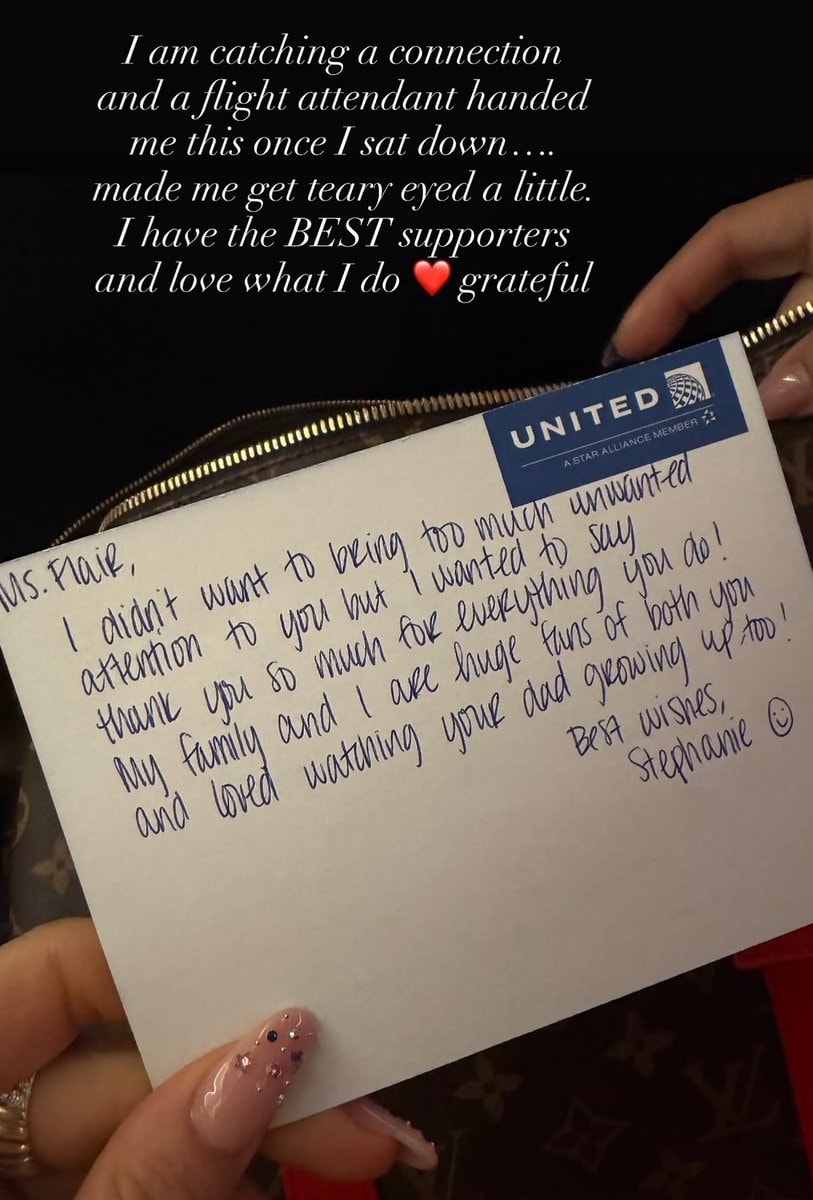 I am catching a connection
and a flight attendant handed
me this once I sat down....
made me get teary eyed a little.
I have the BEST supporters
and love what I do ❤️ grateful
UNITED
A STAR ALLIANCE MEMBER
Ms. Flair,
I didn't want to bring too much unwanted
attention to you but I wanted to say
thank you so much for everything you do!
My family and I are huge fans of both you
and loved watching your dad growing up too!
Best wishes,
Stephanie ☺